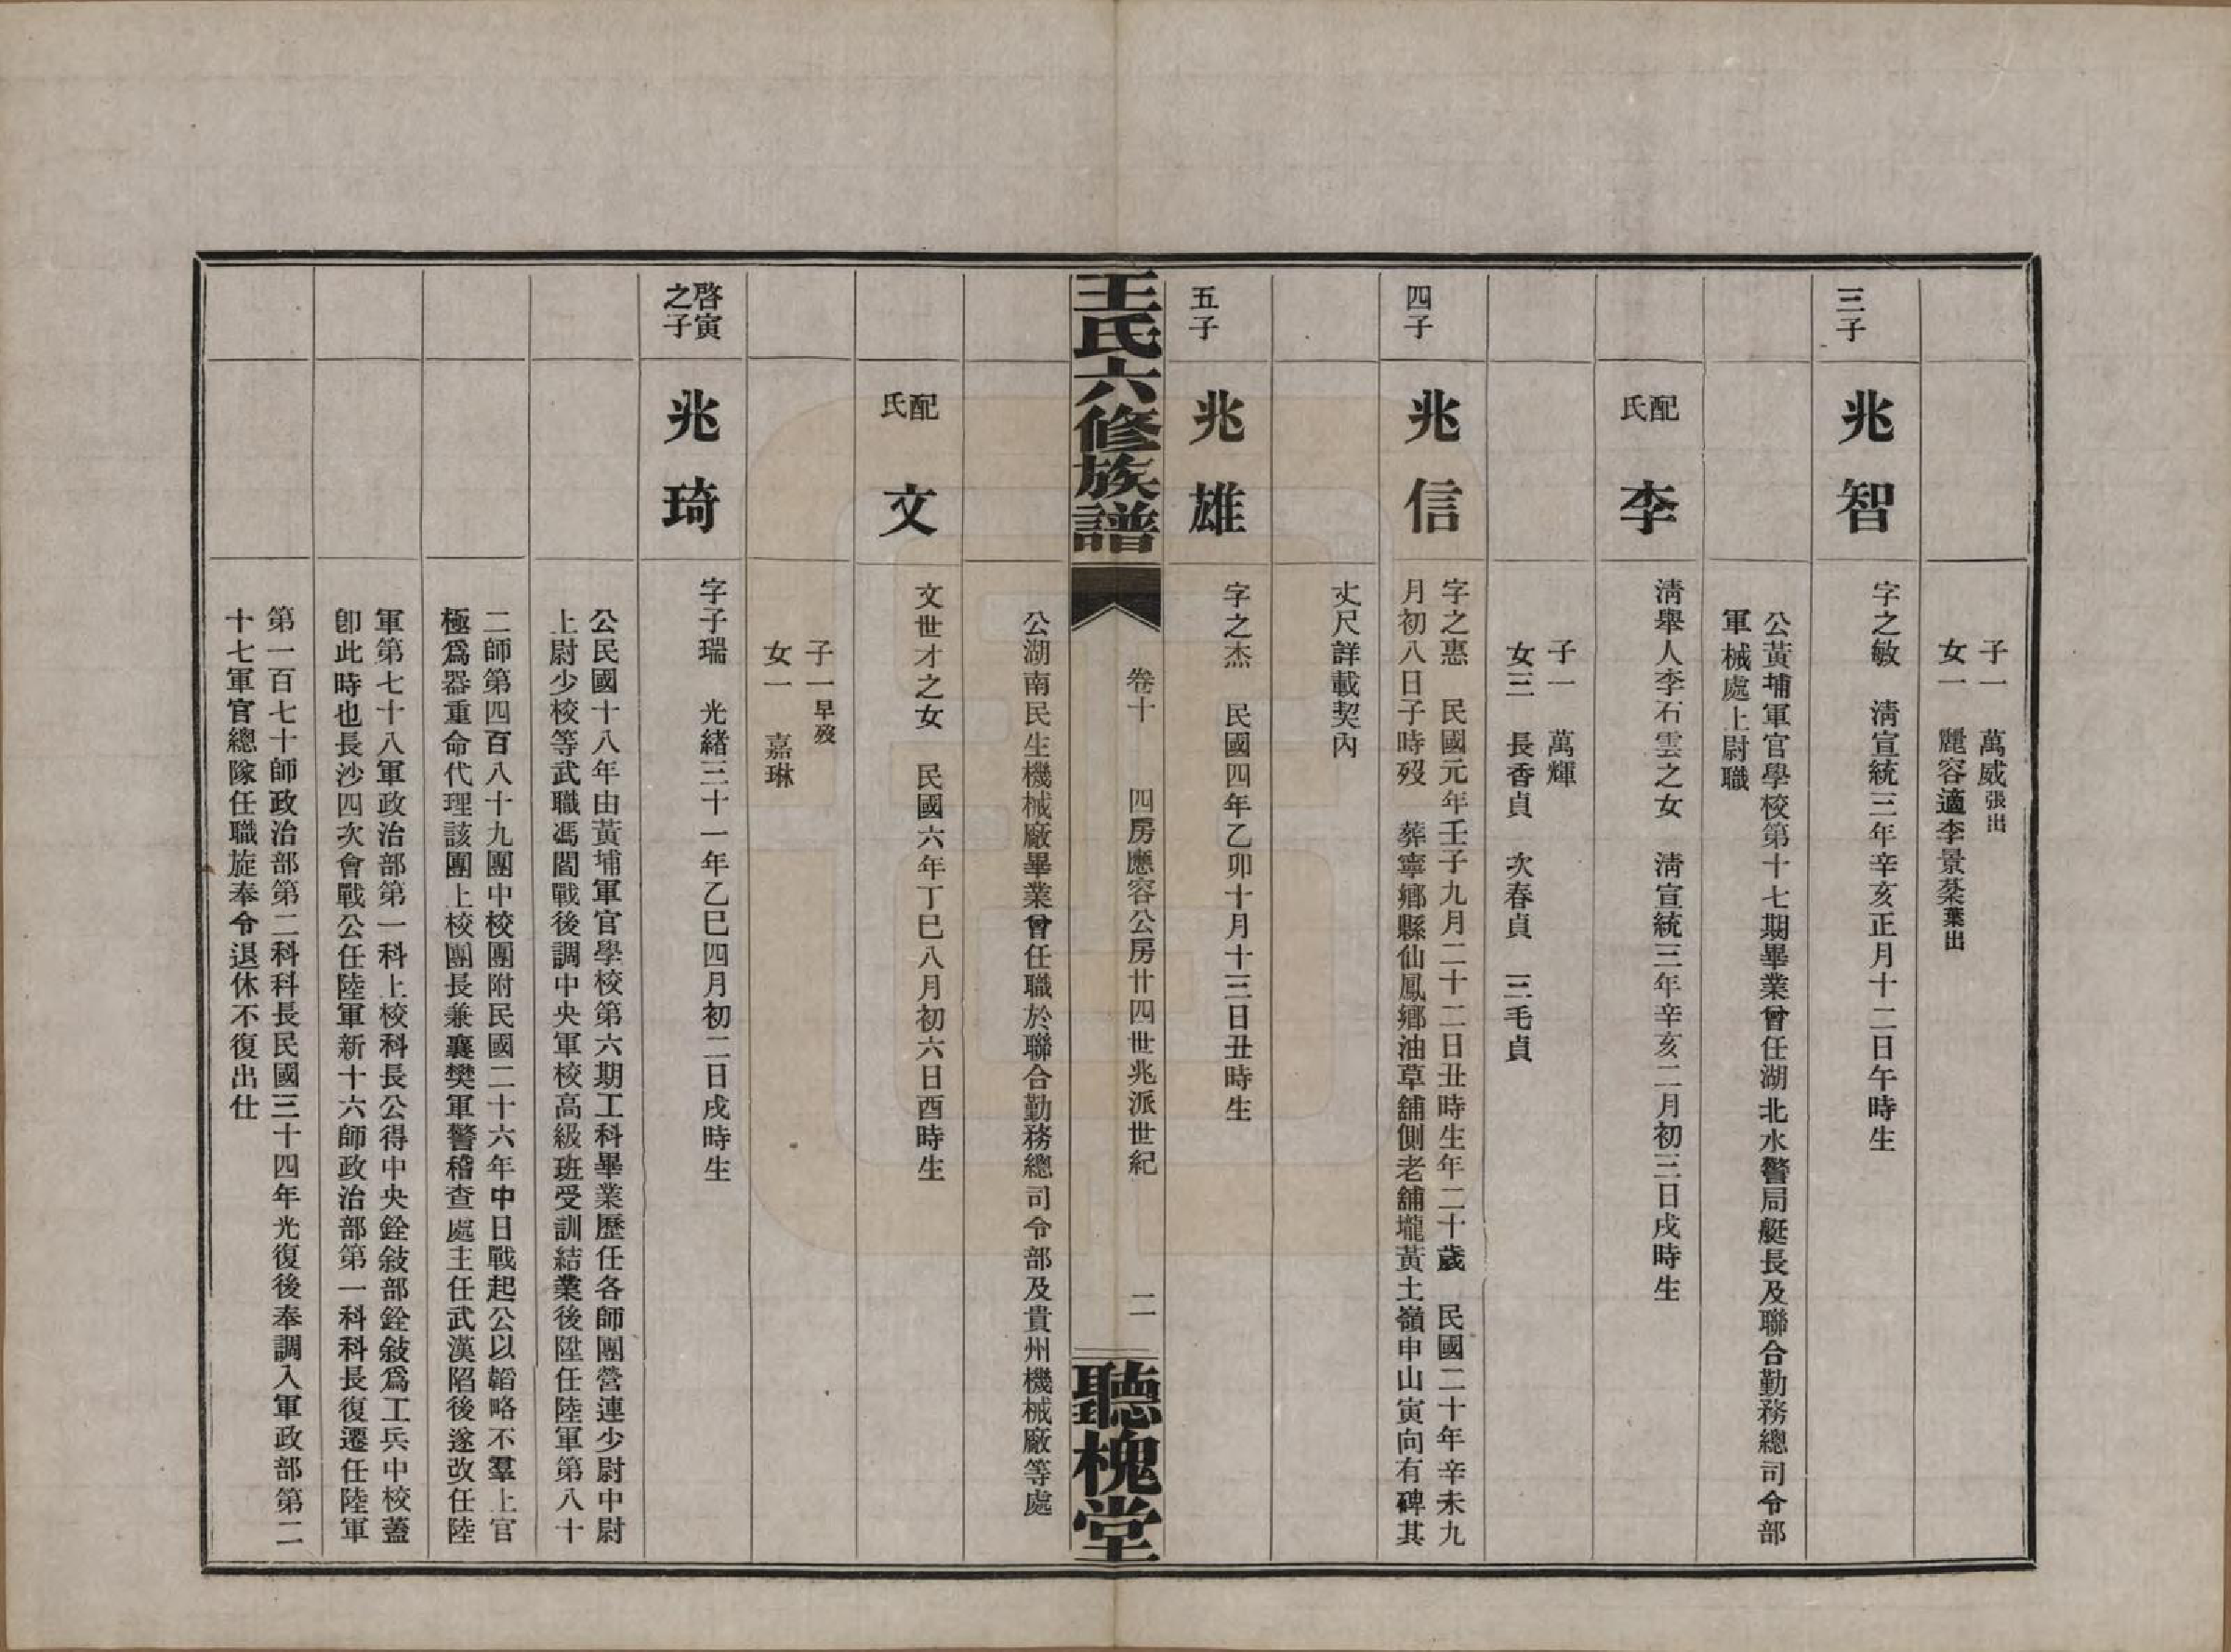 子一　萬威張出
女一　麗容適李景棻葉出
三子
兆智
字之敏　淸宣統三年辛亥正月十二日午時生
公黃埔軍官學校第十七期畢業曾任湖北水警局艇長及聯合勤務總司令部
軍械處上尉職
配氏李
淸舉人李石雲之女　淸宣統三年辛亥二月初三日戌時生
子一　萬輝
女三　長香貞　次春貞　三毛貞
四子
兆信
字之惠　民國元年壬子九月二十二日丑時生年二十歲　民國二十年辛未九
月初八日子時歿　葬寧鄉縣仙鳳鄉油草舖側老舖壠黃土嶺申山寅向有碑其
丈尺詳載契內
五子
兆雄
字之杰　民國四年乙卯十月十三日丑時生
王氏六修族譜
卷十　四房應容公房廿四世兆派世紀　二
聽槐堂
公湖南民生機械廠畢業曾任職於聯合勤務總司令部及貴州機械廠等處
配氏文
文世才之女　民國六年丁巳八月初六日酉時生
子一早歿
女一　嘉琳
啓寅之子
兆琦
字子瑞　光緒三十一年乙巳四月初二日戌時生
公民國十八年由黃埔軍官學校第六期工科畢業歷任各師團營連少尉中尉
上尉少校等武職馮閻戰後調中央軍校高級班受訓結業後陞任陸軍第八十
二師第四百八十九團中校團附民國二十六年中日戰起公以韜略不羣上官
極爲器重命代理該團上校團長兼襄樊軍警稽查處主任武漢陷後遂改任陸
軍第七十八軍政治部第一科上校科長公得中央銓敍部銓敍爲工兵中校蓋
卽此時也長沙四次會戰公任陸軍新十六師政治部第一科科長復遷任陸軍
第一百七十師政治部第二科科長民國三十四年光復後奉調入軍政部第二
十七軍官總隊任職旋奉令退休不復出仕